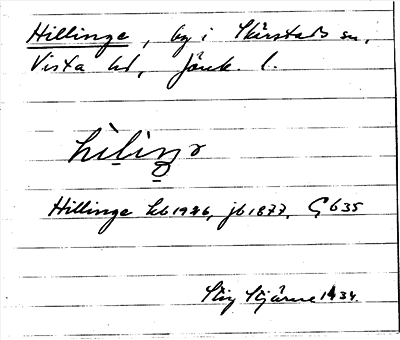 Hillinge, by i Skärstads sn,
Vista hd, Jönk. l.
hìliŋə
Hillinge kb 1926, jb 1877, G 635
Stig Stjärne 1934